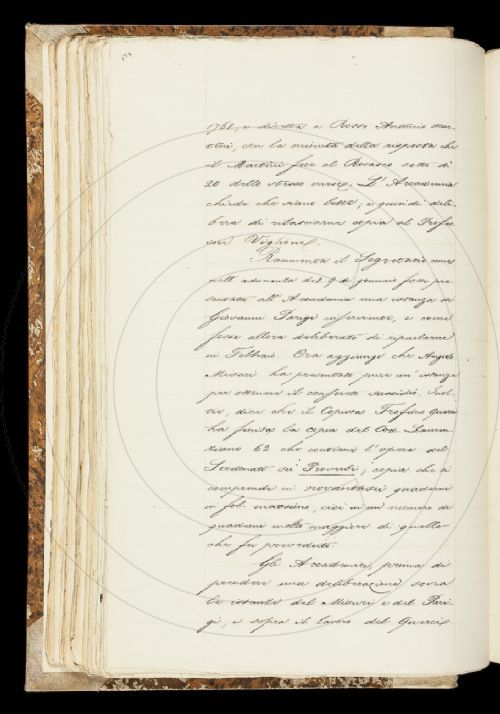 1761, e diretta a Rosso Antonio Mar-
tini, con la minuta della risposta che
il Martini fece al Rosasco sotto dì
20 dello stesso mese. L'Accademia
chiede che siano lette; e quindi deli-
bera di rilasciarne copia al Profes-
sore Viglione.
Rammenta il Segretario come
nell'adunata del 9 di gennaio fosse pre-
sentata all'Accademia una istanza di
Giovanni Parigi infermiccio, e come
fosse allora deliberato di riparlarne
in Febbraio. Ora aggiunge che Angiolo
Misuri ha presentato pure un'istanza
per ottenere il consueto sussidio. Inol-
tre, dice che il Copista Trofimo Guerci
ha finito la copia del Cod. Lauren-
ziano 62 che contiene l'opera del
Serdonati sui Proverbi; copia che si
comprende in novantasei quaderni
in fol. massimo, cioè in un numero di
quaderni molto maggiore di quello
che fu preveduto.
Gli Accademici, prima di
prendere una deliberazione sovra
le istanze del Misuri e del Pari-
gi, e sopra il lavoro del Guerci